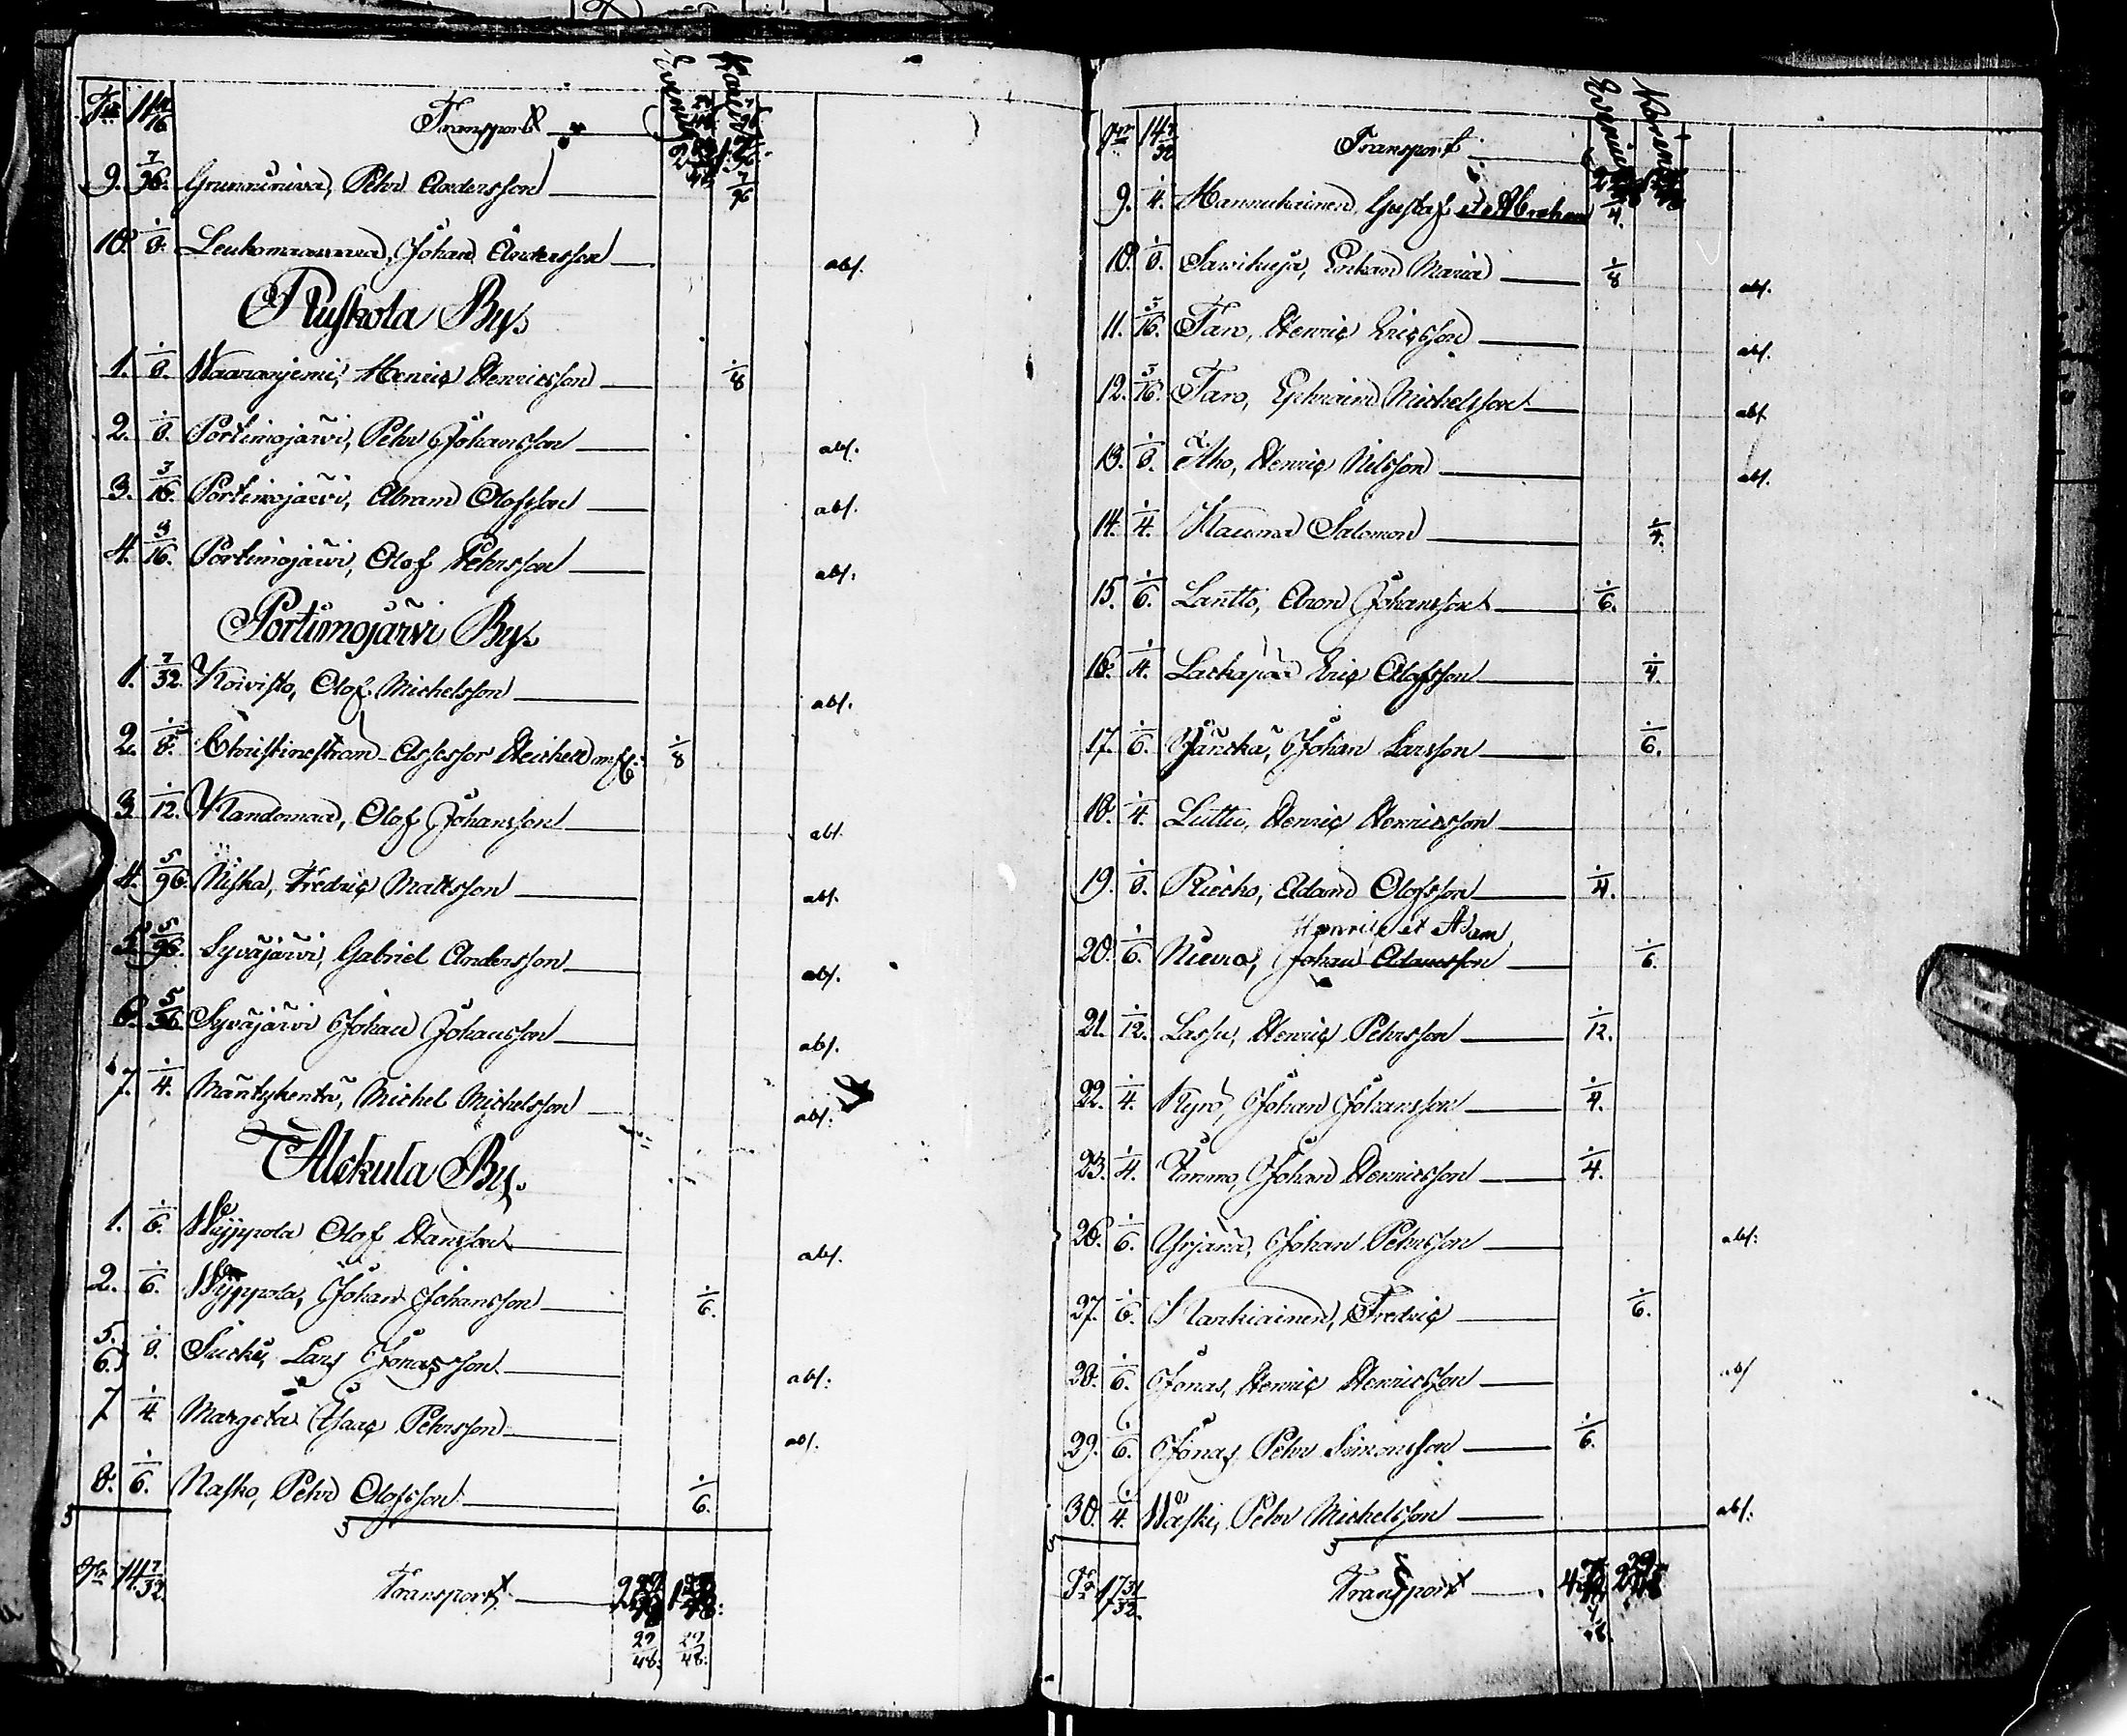 Transport
9. 7/96. Grunniniva, Pehr Andersson
10. 1/8. Leukomaa, Johan Andersson abs.
Ruskola By.
1. 1/8. Waaranjemi, Henric Henricsson 1/8
2. 1/8. Portimojärvi, Pehr Johansson abs.
3. 3/16. Portimojärvi, Abram Olofsson abs.
4. 3/16. Portimojärvi, Olof Pehrsson abs.
Portimojärvi By.
1. 7/32. Koivisto, Olof Michelsson abs.
2. 1/8. Christinestrand Assessor 1/8
3. 1/12. Kandomaa, Olof Johansson abs.
4. 5/96. Niska, Fredric Mattsson abs.
5. 5/96. Syväjärvi, Gabriel Andersson abs.
6. 5/36. Syväjärvi Johan Johansson abs.
7. 1/4. Mäntykentä, Michel Michelsson abs.
Alckula By.
1. 1/6. Wäyppola Olof Hansson abs.
2. 1/6. Wäyppola, Johan Johansson 1/6.
5. 6. 1/8. Sucki, Lars Jonasson abs.
7. 1/4. Margeta Isaac Pehrsson abs.
8. 1/6. Nasko, Pehr Olofsson 1/6.
14 7/32. Transport
29/48. 29/48.
14 7/32 Transport
9. 1/4. Hannukainen, Gustaf et Abraham 1/4.
10. 1/8. Savikuja, Enkan Maria 1/8 abs.
11. 3/16. Taro, Henric Ericsson abs.
12. 3/16. Taro, Ephraim Michelsson abs.
13. 1/8. Aho, Henric Nilsson abs.
14. 1/4. Kauma Salomon 1/4.
15. 1/6. Lantto, Aron Johansson 1/6.
16. 1/4. Lackapää Eric Olofsson 1/4.
17. 1/6. Jänckä, Johan Larsson 1/6.
18. 1/4. Luttu, Henric Henricsson
19. 1/8. Riecko, Adam Olofsson 1/4.
Henric et Adam
20. 1/6. Niura, Johan Adamsson 1/6.
21. 1/12. Lassu, Henric Pehrsson 1/12.
22. 1/4. Kyrö, Johan Johansson 1/4.
23. 1/4. Timmo, Johan Henricsson 1/4.
26. 1/6. Yrjänä, Johan Pehrsson abs.
27. 1/6. Kankiainen, Fredric 1/6.
28. 1/6. Jonas, Henric Henricsson abs
29. 1/6. Jonas, Pehr Simonsson 1/6.
30. 1/4. Waski, Pehr Michelsson abs.
17 31/32. Transport